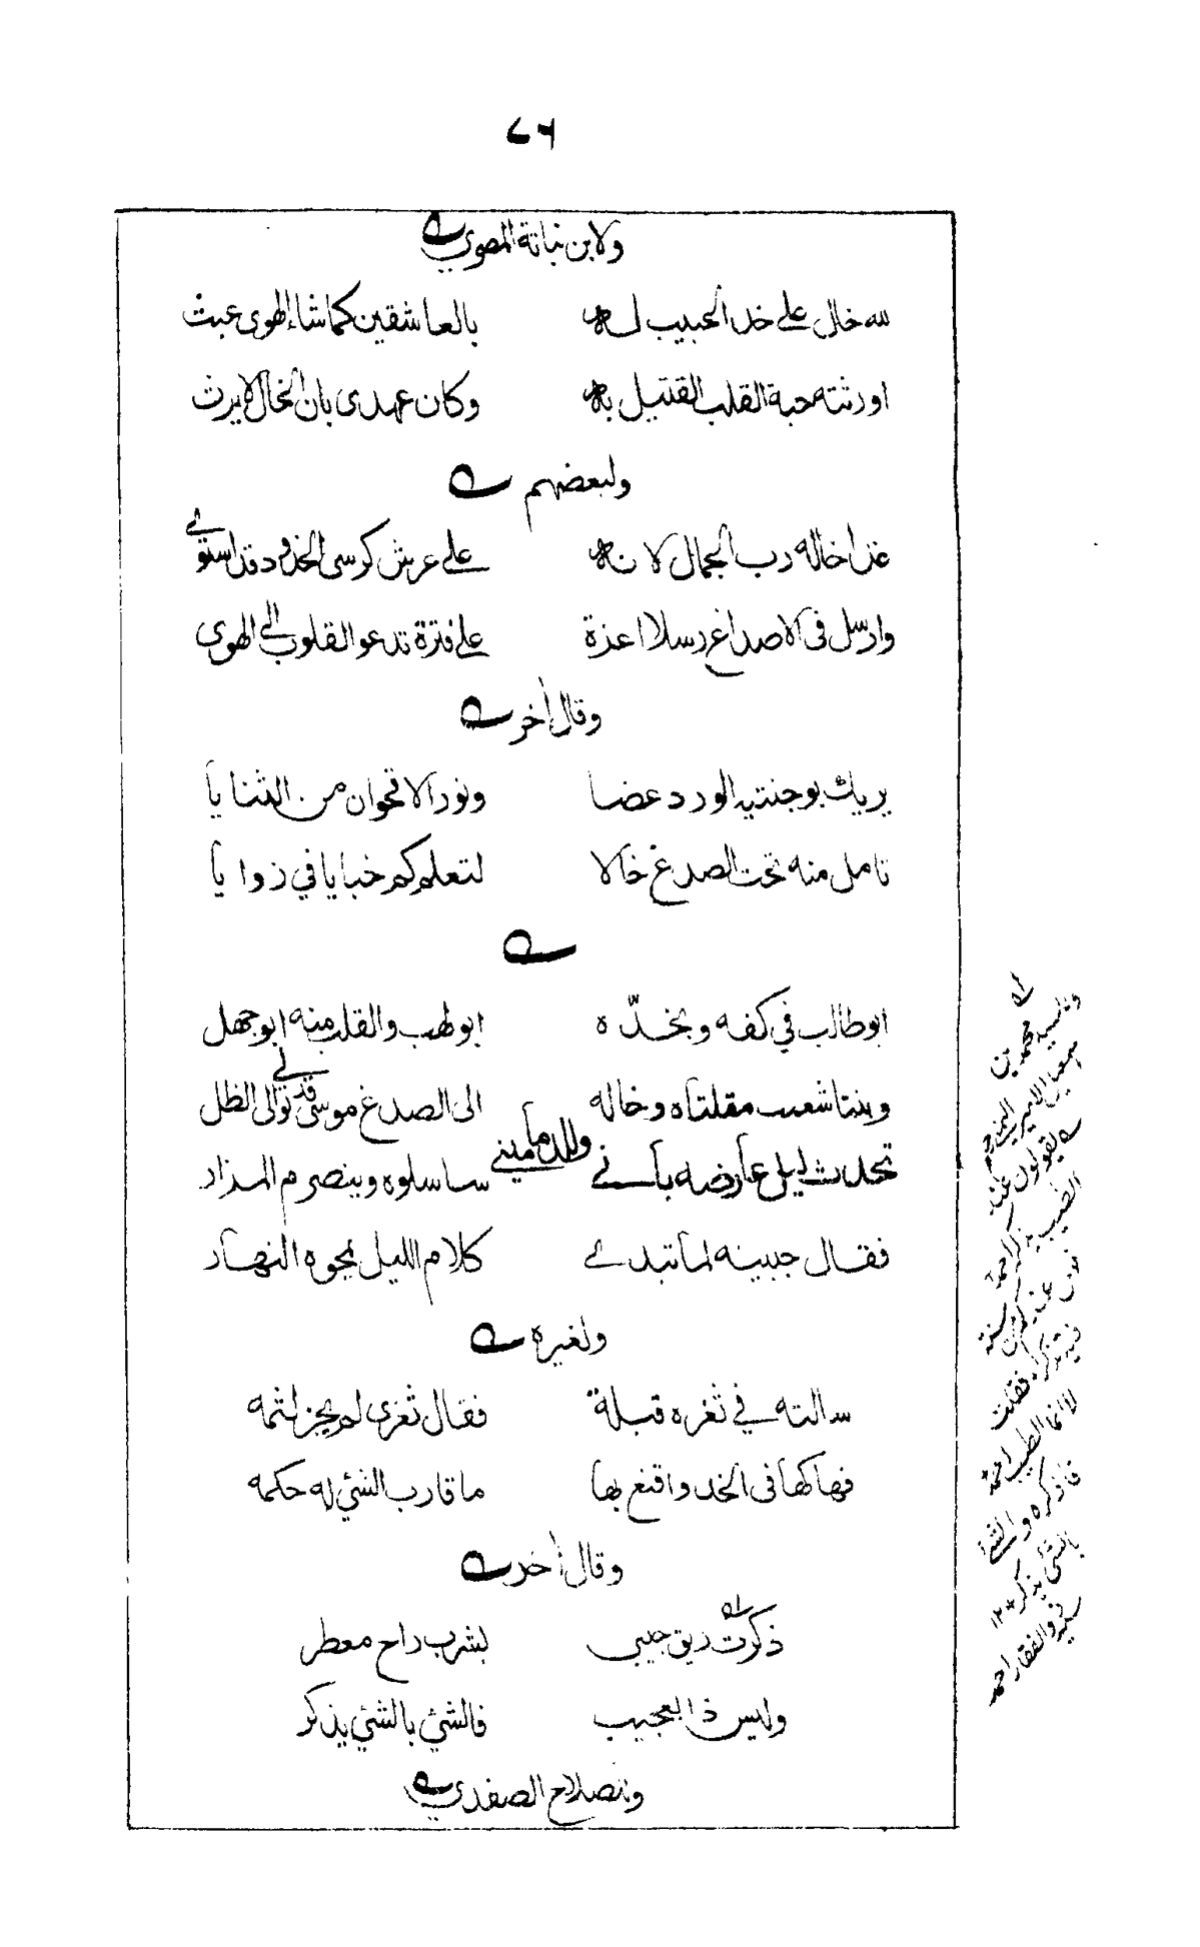 ٧٦
ولابن نباتة المصري
لله خال على خد الحبيب له بالعاشقين كما شاء الهوى عبث
اورثته حبة القلب القتيل به وكان عهدى بان الخال لا يرث
ولبعضهم
غدا خاله رب الجمال لانه على عرش كرسى الخدود قد استوى
وارسل فى الاصداغ رسلا اعزة على فترة تدعو القلوب الى الهوى
وقال أخر
يريك بوجنتيه الورد غضا ونور الاقحوان من الثنايا
تامل منه تحت الصدغ خالا لتعلم كم خبايا في زوايا
ابو طالب في كفه وبخدّه ابو لهب والقلب منه ابو جهل
وبنتا شعيب مقلتاه وخاله الى الصدغ موسى قد تولى الى الظل
وللدمامينى
تحدث ليل عارضه بأنى ساسلوه وينصرم المزار
فقال جبينه لما تبدى كلام الليل يمحوه النهار
ولغيره
سالته في ثغره قبلة فقال ثغرى لم يجز لثمه
فهاكها فى الخد واقنع بها ما قارب الشئ له حكمه
وقال أخر
ذكرت ريق حبيبى بشرب راح معطر
وليس ذا بعجيب فالشئ بالشئ يذكر
وللصلاح الصفدي
وللسيد
محمد بن
يقولون عند
الطيب يذكر احمد
فقلت
لا انما الطيب احمد
فاذكره والشئ
بالشئ يذكر ١٢
سيد ذو الفقار احمد